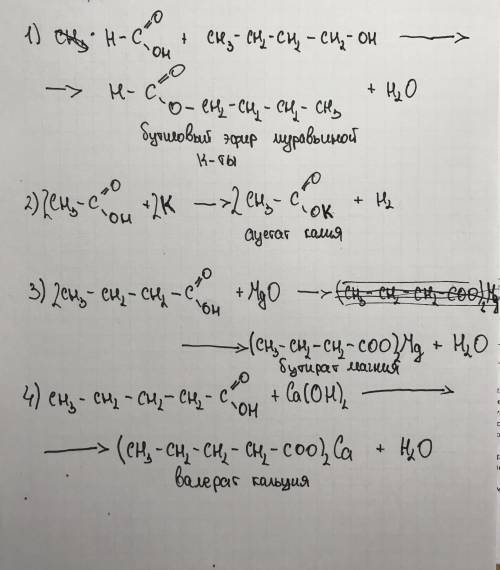 1) H-C=O OH + CH₃-CH₂-CH₂-CH₂-OH ⟶
⟶ H-C=O O-CH₂-CH₂-CH₂-CH₃ + H₂O
бутиловый эфир муравьиной
к-ты
2) 2CH₃-C=O OH + 2K ⟶ 2CH₃-C=O OK + H₂
ацетат калия
3) 2CH₃-CH₂-CH₂-C=O OH + MgO ⟶ (CH₃-CH₂-CH₂-COO)₂Mg
⟶ (CH₃-CH₂-CH₂-COO)₂Mg + H₂O
бутират магния
4) CH₃-CH₂-CH₂-CH₂-C=O OH + Ca(OH)₂ ⟶
⟶ (CH₃-CH₂-CH₂-CH₂-COO)₂Ca + H₂O
валерат кальция